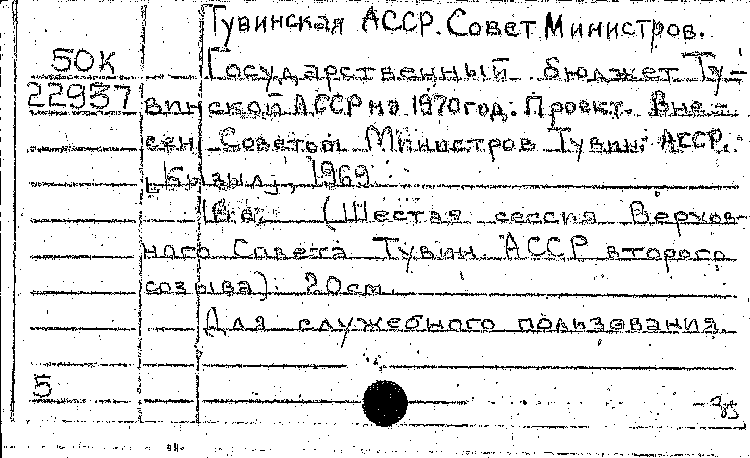 Тувинская АССР. Совет Министров.
50К
Государственный бюджет Ту-
22937
винской АССР на 1970 год. Проект. Вне-
сен Советом Министров Тувин. АССР.
[Кызыл], 1969.
(Шестая сессия Верхов-
ного Совета Тувин. АССР второго
созыва). 20см.
Для служебного пользования.
5